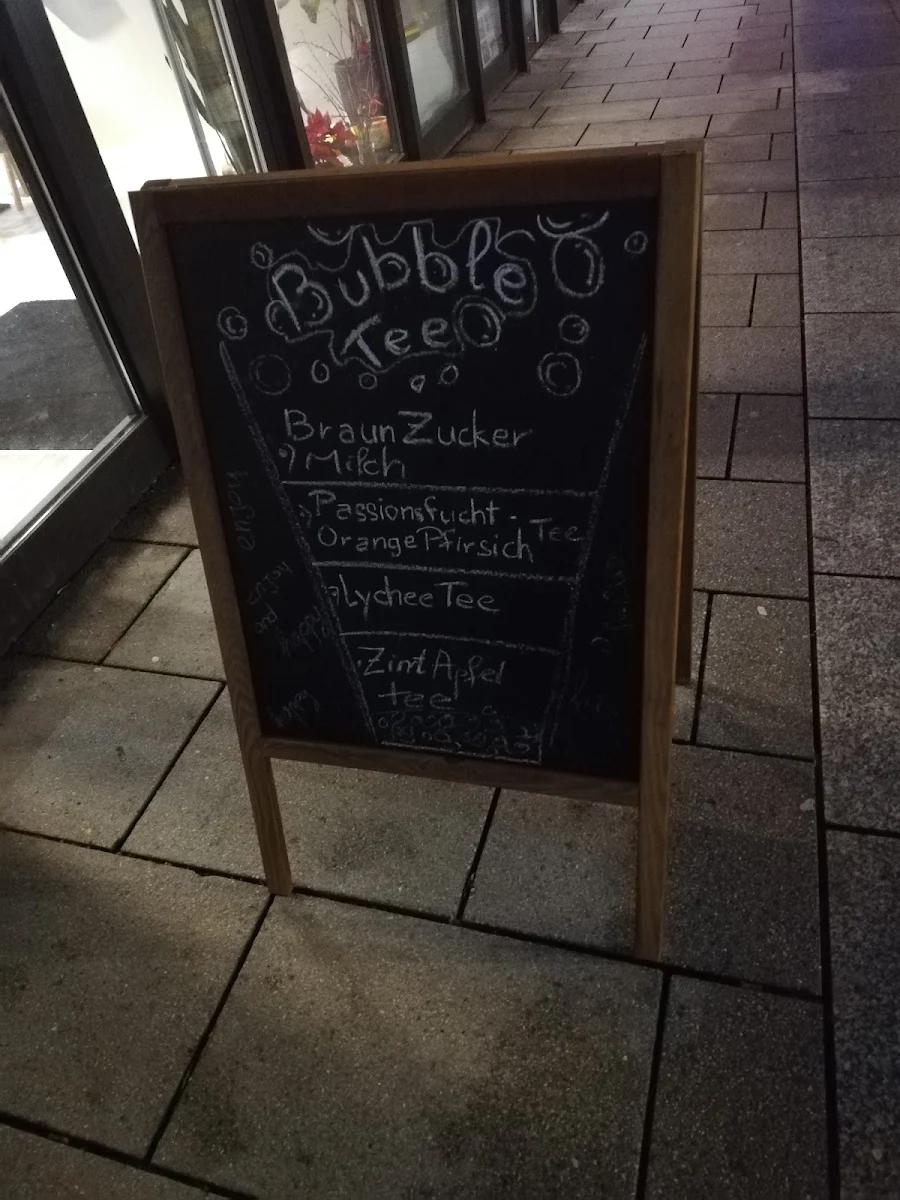 Bubble
Tee
Braun Zucker
Milch
Passionsfucht - Tee
Orange Pfirsich
Lychee Tee
Zimt Apfel
tee
enjoy